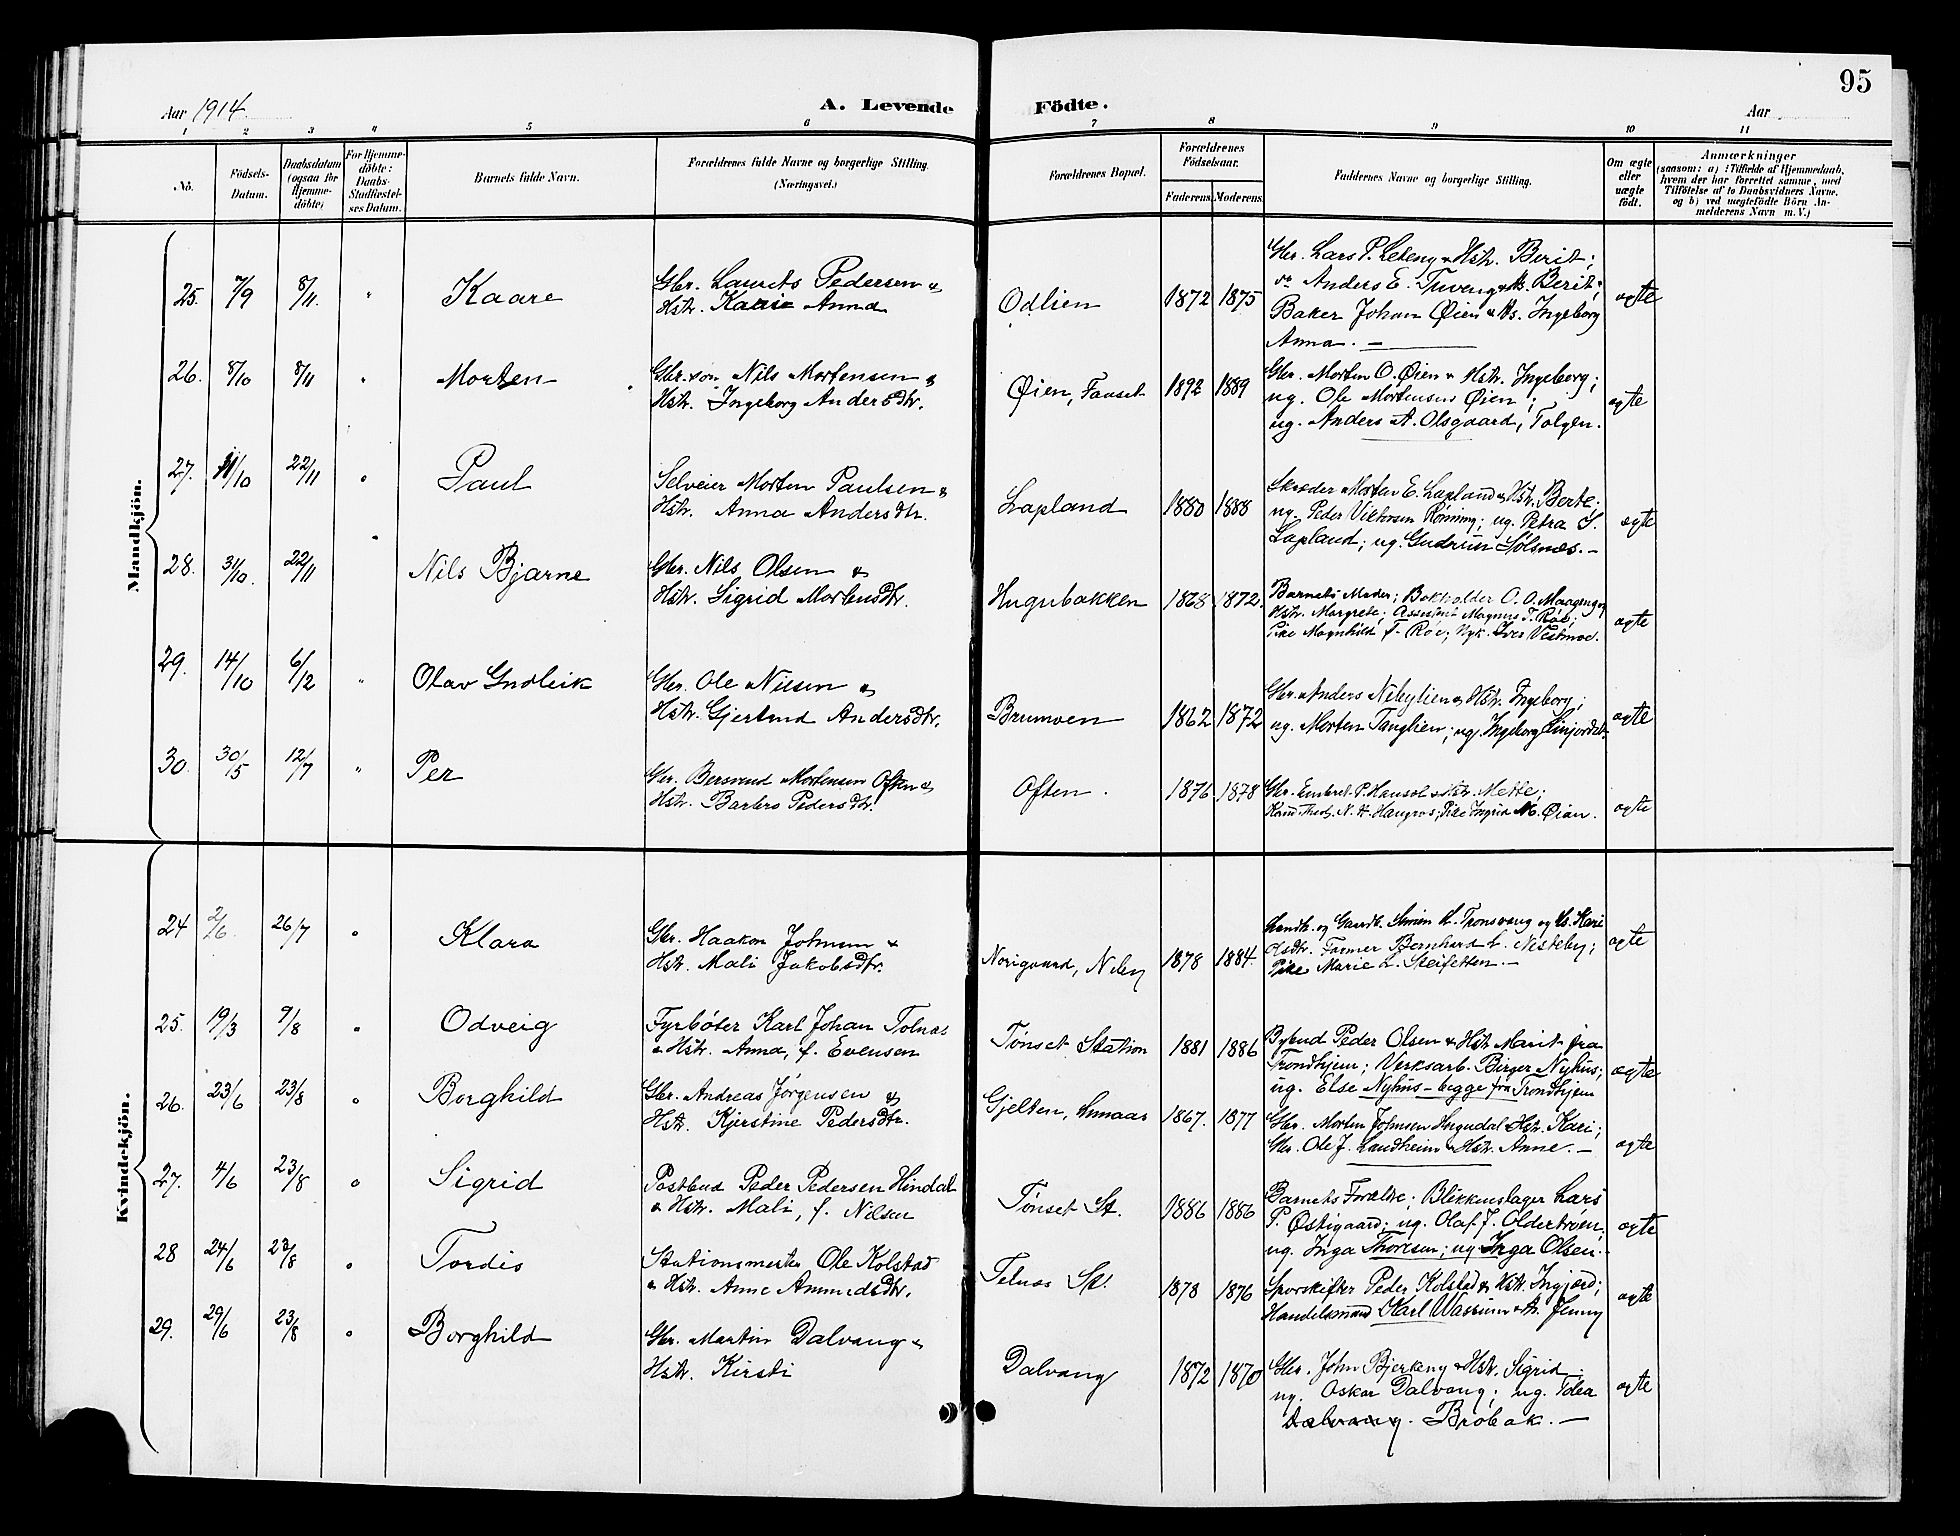 95
Aar 1914.
A. Levende Födte.
Aar
1 2 3 4 5 6 7 8 9 10 11
No.
Födsels-Datum.
Daabsdatum (ogsaa for Hjemme-döbte)
For Hjemme-döbte: Daabs-Stadfæstel-ses Datum.
Barnets fulde Navn.
Forældrenes fulde Navne og borgerlige Stilling. (Næringsvei.)
Forældrenes Bopæl.
Forældrenes Födselsaar.
Faderens. Moderens.
Faddernes Navne og borgerlige Stilling.
Om ægte eller uægte födt.
Anmærkninger
(saasom: a) i Tilfælde af Hjemmedaab,
hvem der har forrettet samme, med
Tilföielse af to Daabsvidners Navne,
og b) ved uægtefödte Börn An-
melderens Navn m.V.)
Mandkjön.
25. 7/9 8/11. " Kaare
Gbr. Laurits Pedersen &
Hstr. Karie Anna
Odlien 1872 1875
Gbr. Lars P. Leteng & Hstr. Berit;
Anders E. Tuveng & Hs. Berit;
Baker Johan Øien & Hs. Ingeborg
Anna. —
ægte
26. 8/10 8/11 " Morten
Gbr.søn Nils Mortensen &
Hstr. Ingeborg Andersdtr.
Øien, Fauset 1892 1889
Gbr. Morten O. Øien & Hstr. Ingeborg;
ug. Ole Mortensen Øien;
ug. Anders A. Olsgaard, Tolgen.
ægte
27. 11/10 22/11 " Paul
Selveier Morten Paulsen &
Hstr. Anna Andersdtr.
Lapland 1880 1888
Skræder Morten E. Lapland & Hstr. Berte;
ug. Peder Viktorsen Rønning; ug. Petra S.
Lapland; ug. Gudrun Sølsnæs. —
ægte
28. 31/10. 22/11 " Nils Bjarne
Gbr. Nils Olsen &
Hstr. Sigrid Mortensdtr.
Hugubakken 1868 1872.
Barnets Moder; Bokholder O. O. Moageng &
Hstr. Margrete; Assistent Magnus T. Røe;
Pike Magnhild T. Røe; Iver Vestmoe.
ægte
29. 14/10 6/12 " Olav Gudleik
Gbr. Ole Nilsen &
Hstr. Gjertrud Andersdtr.
Brumoen 1862 1872
Gbr. Anders Nebylien & Hstr. Ingeborg;
ug. Morten Tanglien; ug. Ingeborg
ægte
30. 30/5 12/7 " Per
Gbr. Bersvend Mortensen Often &
Hstr. Barbro Pedersdtr.
Often. 1876 1878
Gbr. Embret P. Hausol & Hstr. Mette;
N. H. Haugros; Pike Ingrid M. Øian.
ægte
Kvindekjön.
24 2/6. 26/7 " Klara
Gbr. Haakon Johnsen &
Hstr. Mali Jakobsdtr.
Norigaard, Neby 1878 1884.
Landh. og Gaardb. Simen L. Tronsvang og Hs. Kari
Olsdtr. Farmer Bernhard L. Nesteby;
Pike Marie L. Steifetten. —
ægte
25. 19/3 9/8 " Odveig
Fyrbøter Karl Johan Tolnæs
& Hstr. Anna, f. Evensen
Tønset Station 1881 1886
Bybud Peder Olsen & Hstr. Marit fra
Trondhjem; Verksarb. Birger Nyhus;
ug. Else Nyhus — begge fra Trondhjem
ægte
26. 23/6 23/8 " Borghild
Gbr. Andreas Jørgensen &
Hstr. Kjerstine Pedersdtr.
Gjelten, 1867. 1877
Gbr. Morten Johnsen Hogndal & Hstr. Kari;
Gbr. Ole J. Landheim & Hstr. Anne. —
ægte
27. 4/6 23/8 " Sigrid
Postbud Peder Pedersen Hindal
& Hstr. Mali, f. Nilsen
Tønset St. 1886 1886
Barnets Forældre; Blikkenslager Lars
P. Østigaard; ug. Olaf J. Oldertrøen;
ug. Inga Thoresen; ug Inga Olsen.
ægte
28 24/6 23/8 " Tordis
Stationsmester Ole Kolstad
& Hstr. Anne Ammundsdtr.
Telnæs St. 1878 1876
Sporskifter Peder Kolstad & Hstr. Ingjerd;
Handelsmand Karl Wasrum & Jenny
ægte
29. 29/6 23/8 " Borghild
Gbr. Martin Dalvang &
Hstr. Kirsti
Dalvang 1872 1870
Gbr. John Bjerkeng & Hstr. Sigrid
ug. Oskar Dalvang; ug. Tdea
Dalvang. Brobak. —
ægte